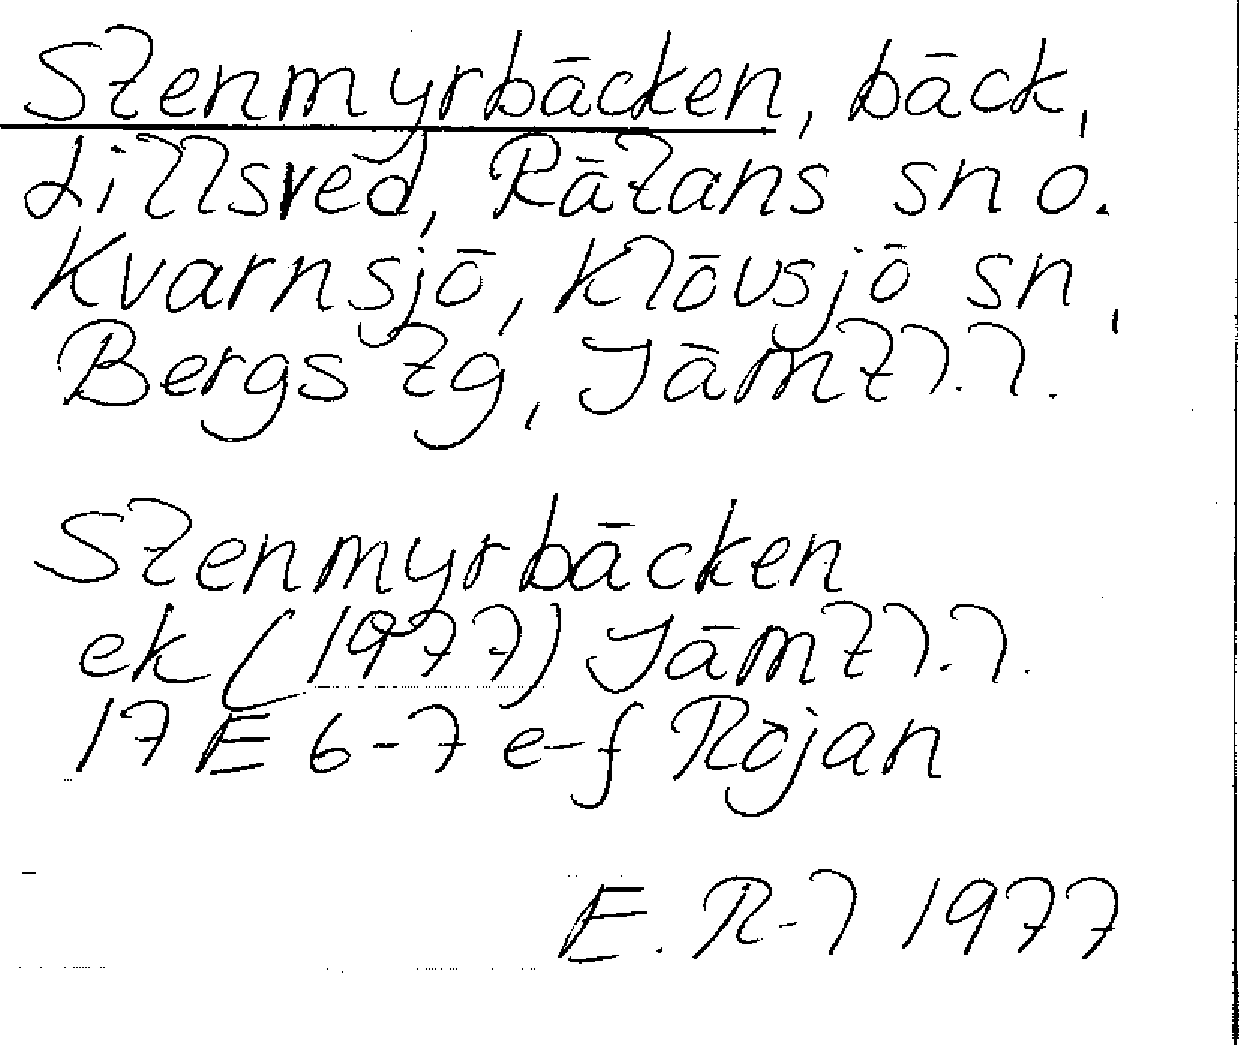 Stenmyrbäcken, bäck,
Lillsved, Rätans sn o.
Kvarnsjö, Klövsjö sn,
Bergs tg, Jämtl. l.
Stenmyrbäcken
ek (1977) Jämtl. l.
17 E 6-7 e-f Röjan
E. R-l 1977